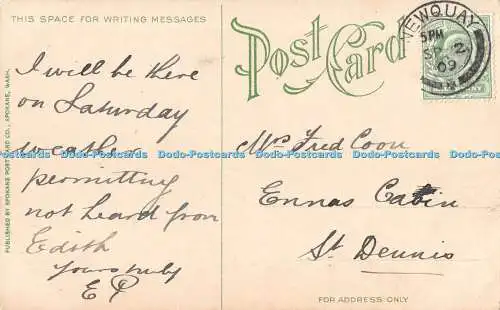 THIS SPACE FOR WRITING MESSAGES
Post Card
NEWQUAY
5 PM
2
09
I will be there
on Saturday
weather
permitting
not heard from
Edith
yours truly
E P
Mrs Fred Coon
Ennas Cabin
St Dennis
FOR ADDRESS ONLY
PUBLISHED BY SPOKANE POST CARD CO., SPOKANE, WASH.
Dodo-Postcards Dodo-Postcards Dodo-Postcards Dodo-Postcards Dodo-Postcards Dodo-Postcards